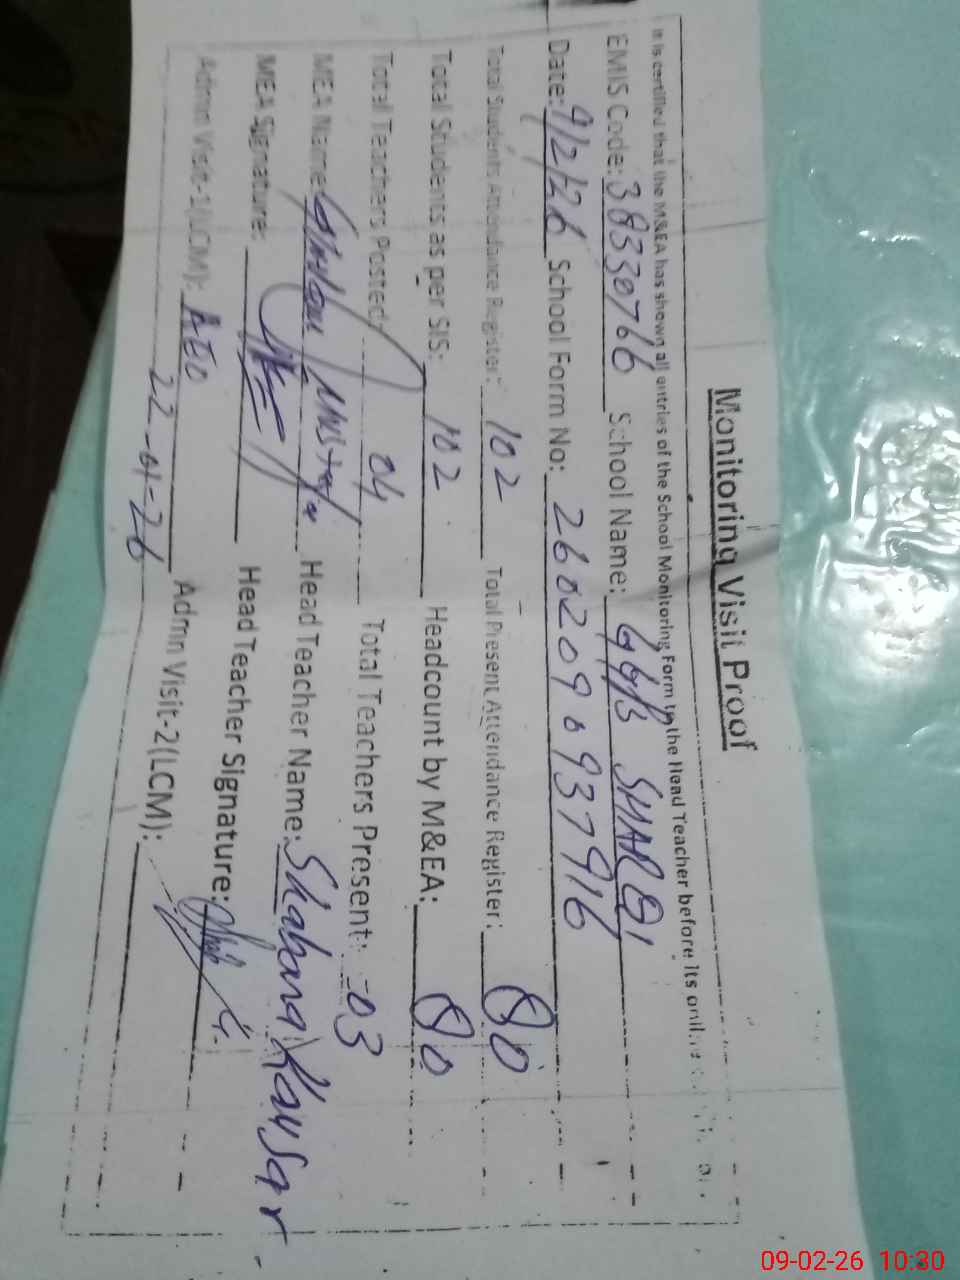 Monitoring Visit Proof
It is certified that the M&EA has shown all entries of the School Monitoring Form to the Head Teacher before its
EMIS Code: 38330766 School Name: GGPS SHARQI
Date: 9/2/26 School Form No: 2602090937916
Total Students Attendance Register: 102 Total Present Attendance Register: 80
Total Students as per SIS: 102 Headcount by M&EA: 80
Total Teachers Posted: 04 Total Teachers Present: 03
MEA Name: Ghulam Mustafa Head Teacher Name: Shabana Kausar
MEA Signature: Head Teacher Signature:
Admn Visit-1(LCM): AEO Admn Visit-2(LCM):
22-01-26
09-02-26 10:30